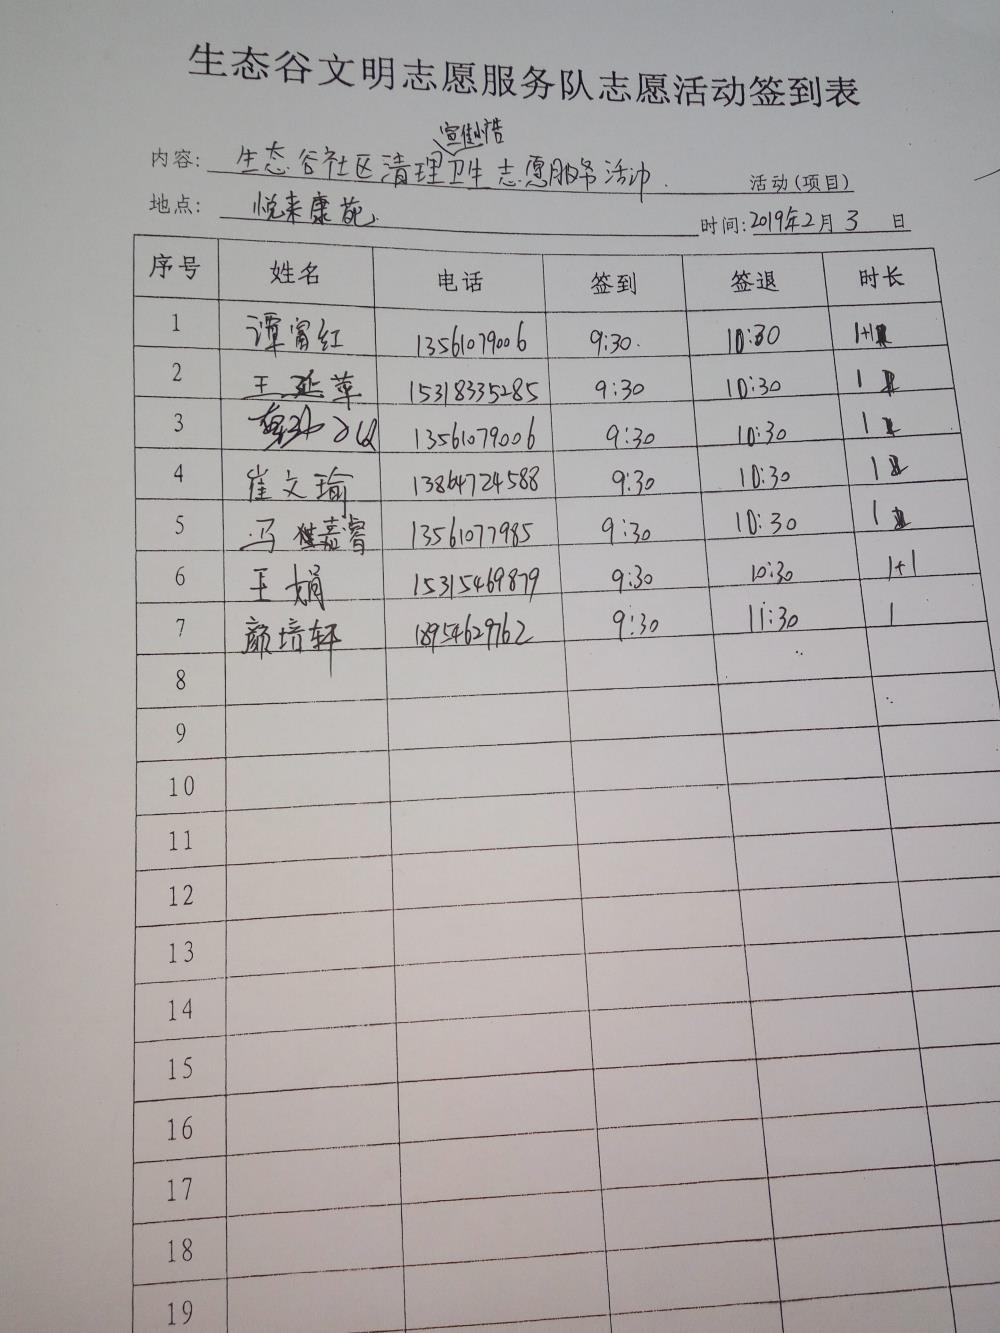 生态谷文明志愿服务队志愿活动签到表
内容: 生态谷社区清理卫生志愿服务活动 活动(项目)
地点: 悦来康苑 时间: 2019年2月3日
序号 姓名 电话 签到 签退 时长
1 谭富红 13561079006 9:30 10:30 1+1
2 王延苹 15318335285 9:30 10:30 1
3 13561079006 9:30 10:30 1
4 崔文瑜 13864724588 9:30 10:30 1
5 冯嘉睿 13561077985 9:30 10:30 1
6 王娟 15315469879 9:30 10:30 1+1
7 颜培轩 18954629762 9:30 11:30 1
8
9
10
11
12
13
14
15
16
17
18
19